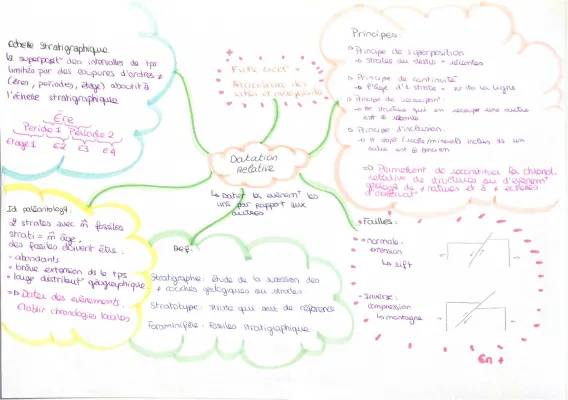 Echelle stratigraphique
la superposit° des intervalles de tps
limités par des coupures d'ordres ≠
(ères, périodes, étage) aboutit à
l'échelle stratigraphique
Ère
Période 1 Période 2
étage 1 é2 é3 é4
Principes:
Principe de superposition
strates du dessus = récentes
Principe de continuité
Principe de recoupement:
Principe d'inclusion
autre est + ancien
=> Permettent de reconstituer la chronol.
relative de structures ou d'événem^t
Datation
Relative
↳ Dater les événem^t les
uns par rapport aux
autres
Id paléontology:
2 strates avec m̂ fossiles
strati = m̂ âge,
des fossiles doivent être:
• abondants
• brève extension ds le tps
• large distribut° géographique
=> Dater des événements,
établir chronologies locales
Def:
Stratigraphie: étude de la succession des
≠ couches géologiques ou strates
Stratotype: strate qui sert de référence
Foraminifère: Fossiles stratigraphique
• Failles:
• normale:
extension
↳ rift
• Inverse:
compression
↳ montagne
En +